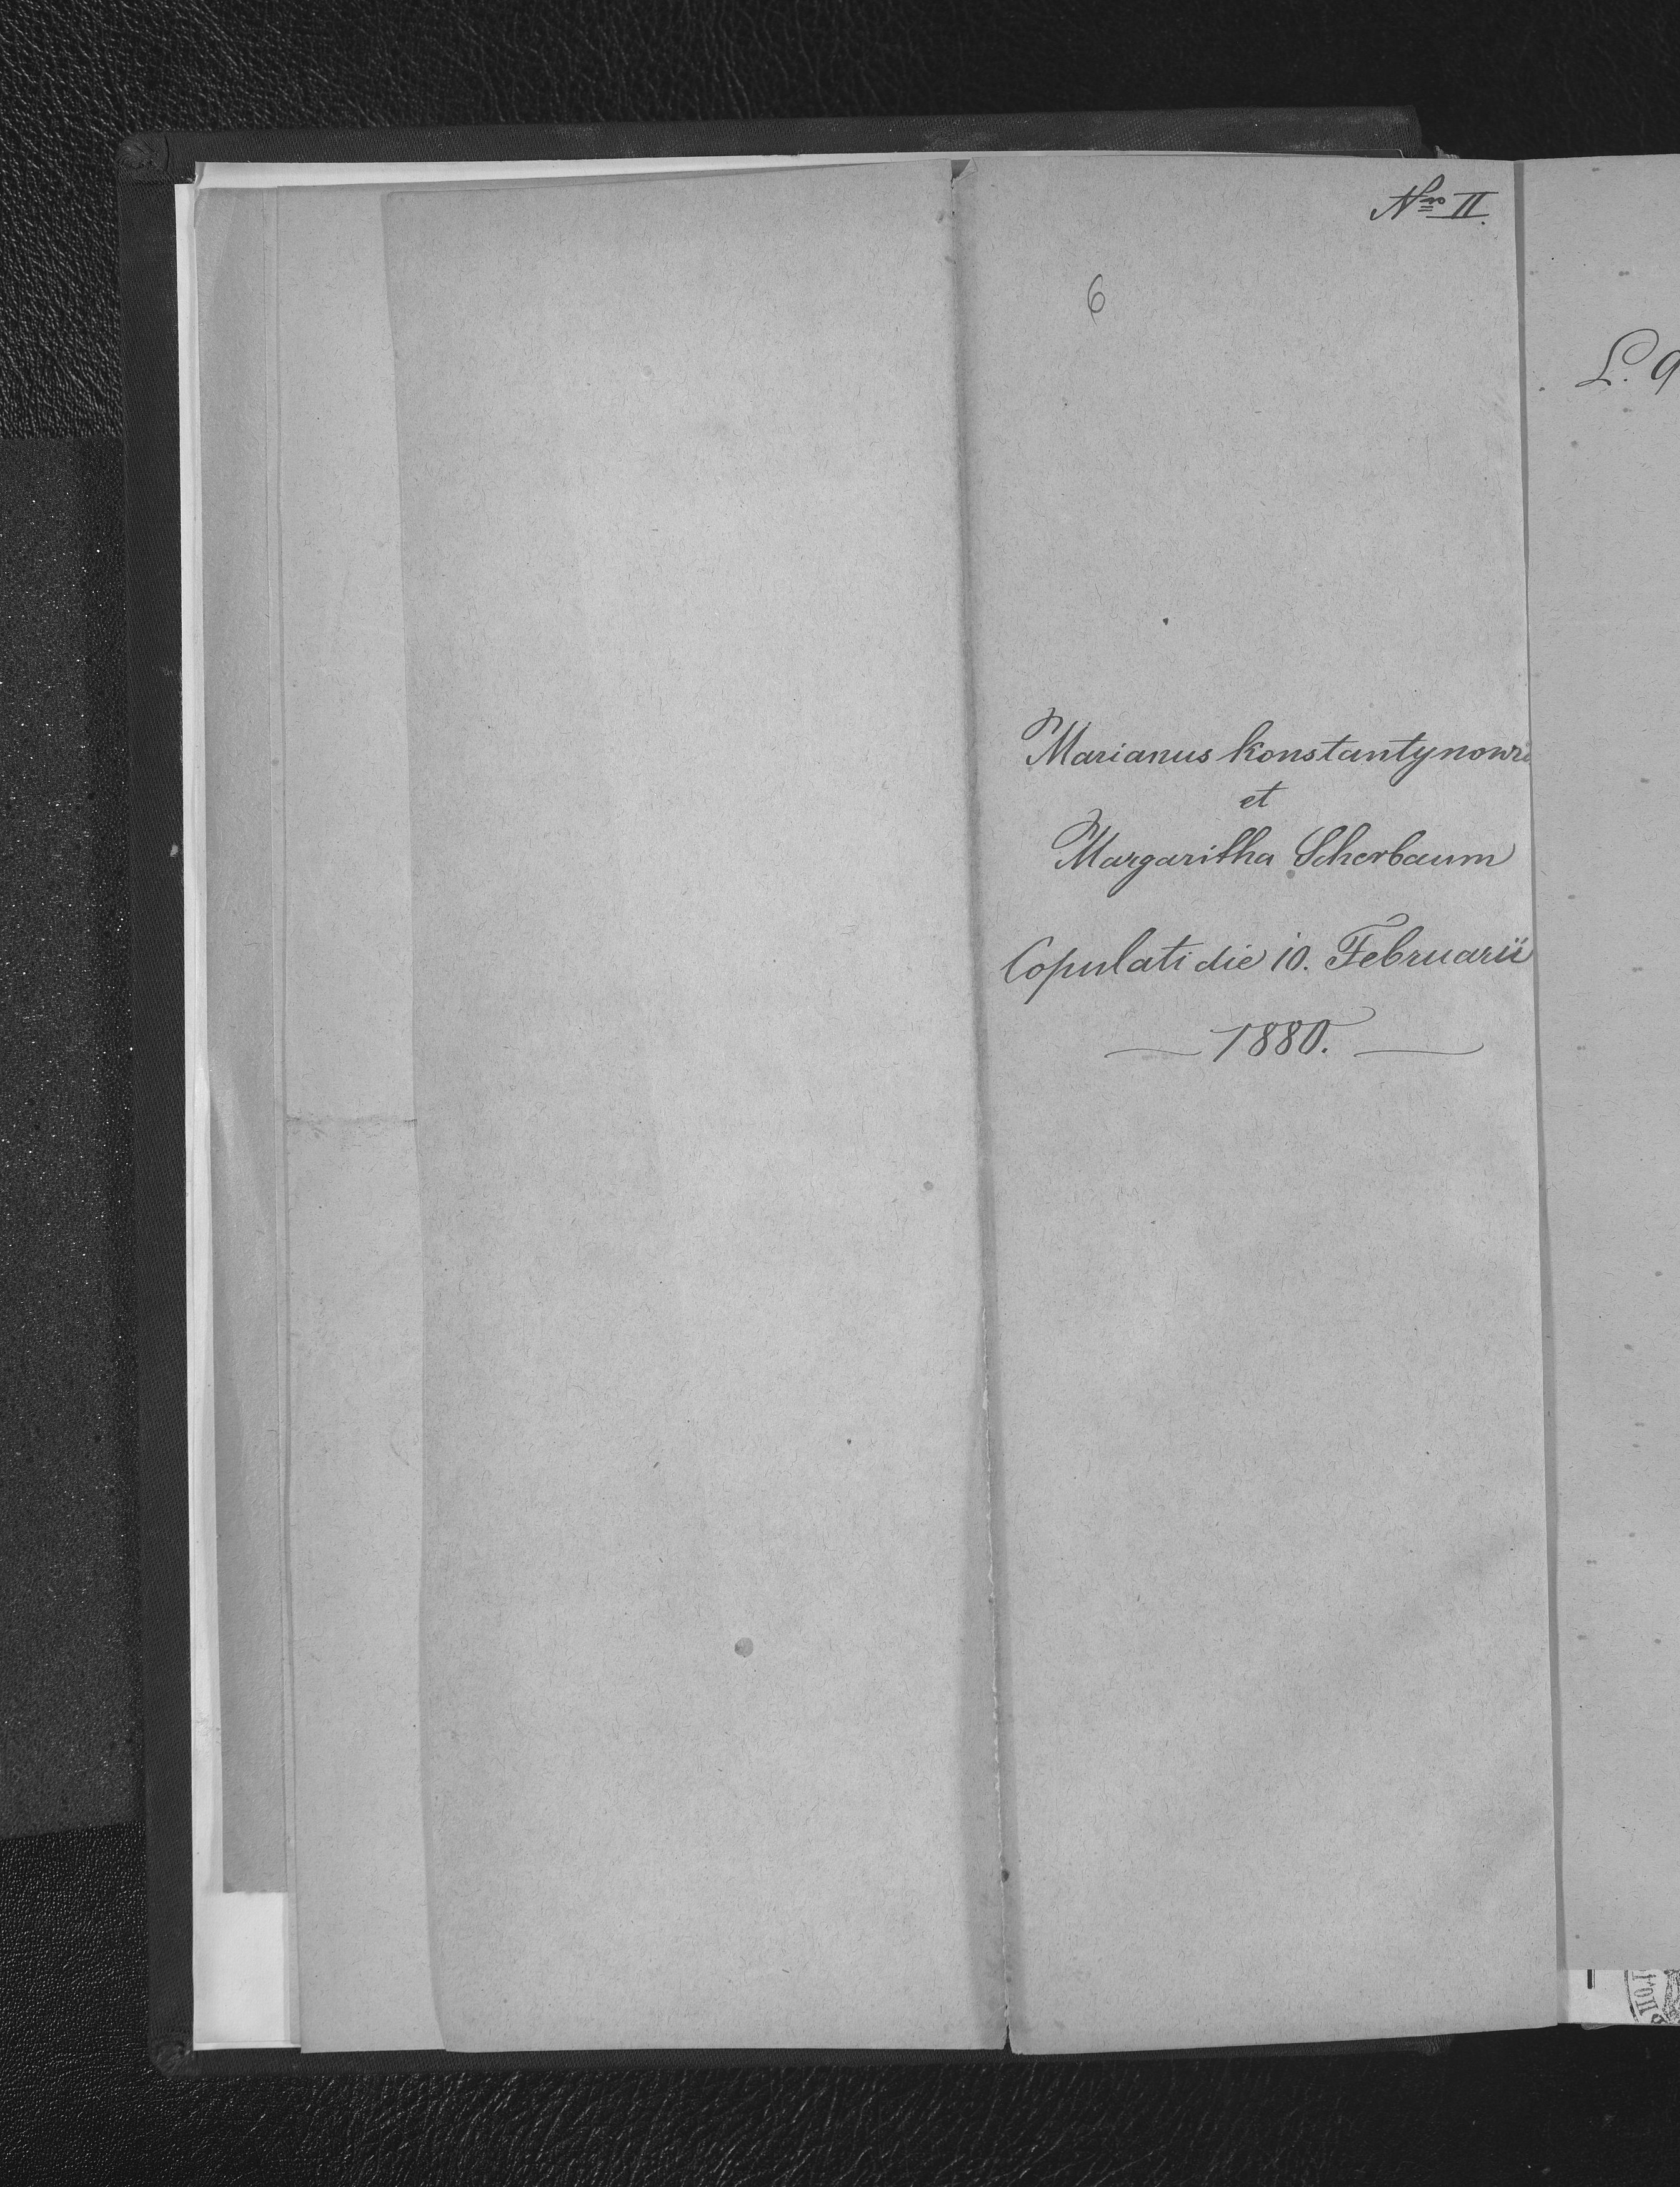 Nro II.
6
L. 9
Marianus Konstantynowi
et
Margaritha Scherbaum
Copulati die 10. Februarii
1880.